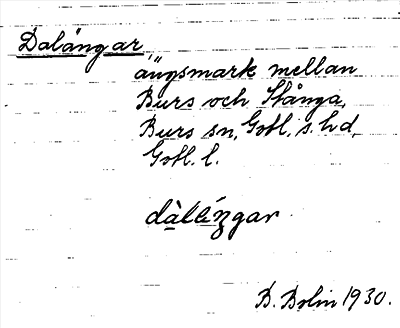 Dalängar,
ängsmark mellan
Burs och Stånga,
Burs sn, Gotl. s. hd,
Gotl. l.
dàllíngar
B. Bolin 1930.